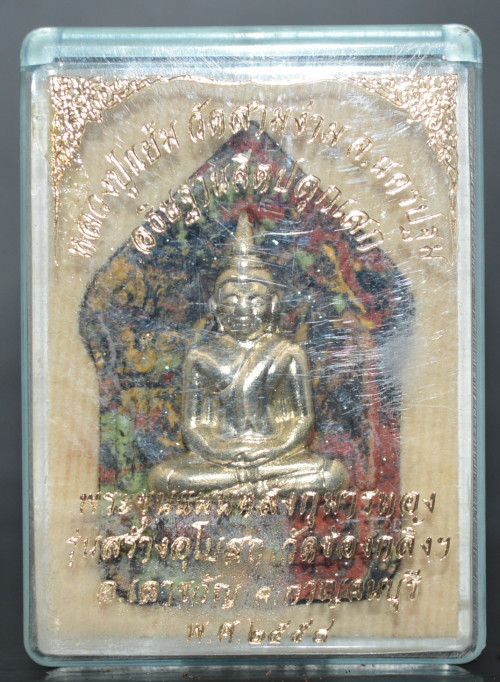 หลวงปู่แย้ม วัดสามง่าม จ.นครปฐม
อธิษฐานจิตปลุกเสก
พระขุนแผนหลังกุมารทอง
รุ่นสร้างอุโบสถ วัดช่องกลิ้งฯ
จ.กาญจนบุรี
พ.ศ.๒๕๕๘